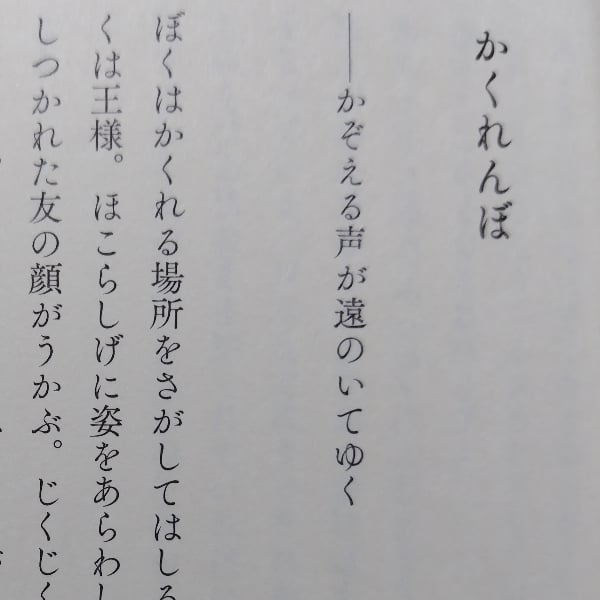 かくれんぼ
──かぞえる声が遠のいてゆく
ぼくはかくれる場所をさがしてはしる
くは王様。ほこらしげに姿をあらわし
しつかれた友の顔がうかぶ。じくじく